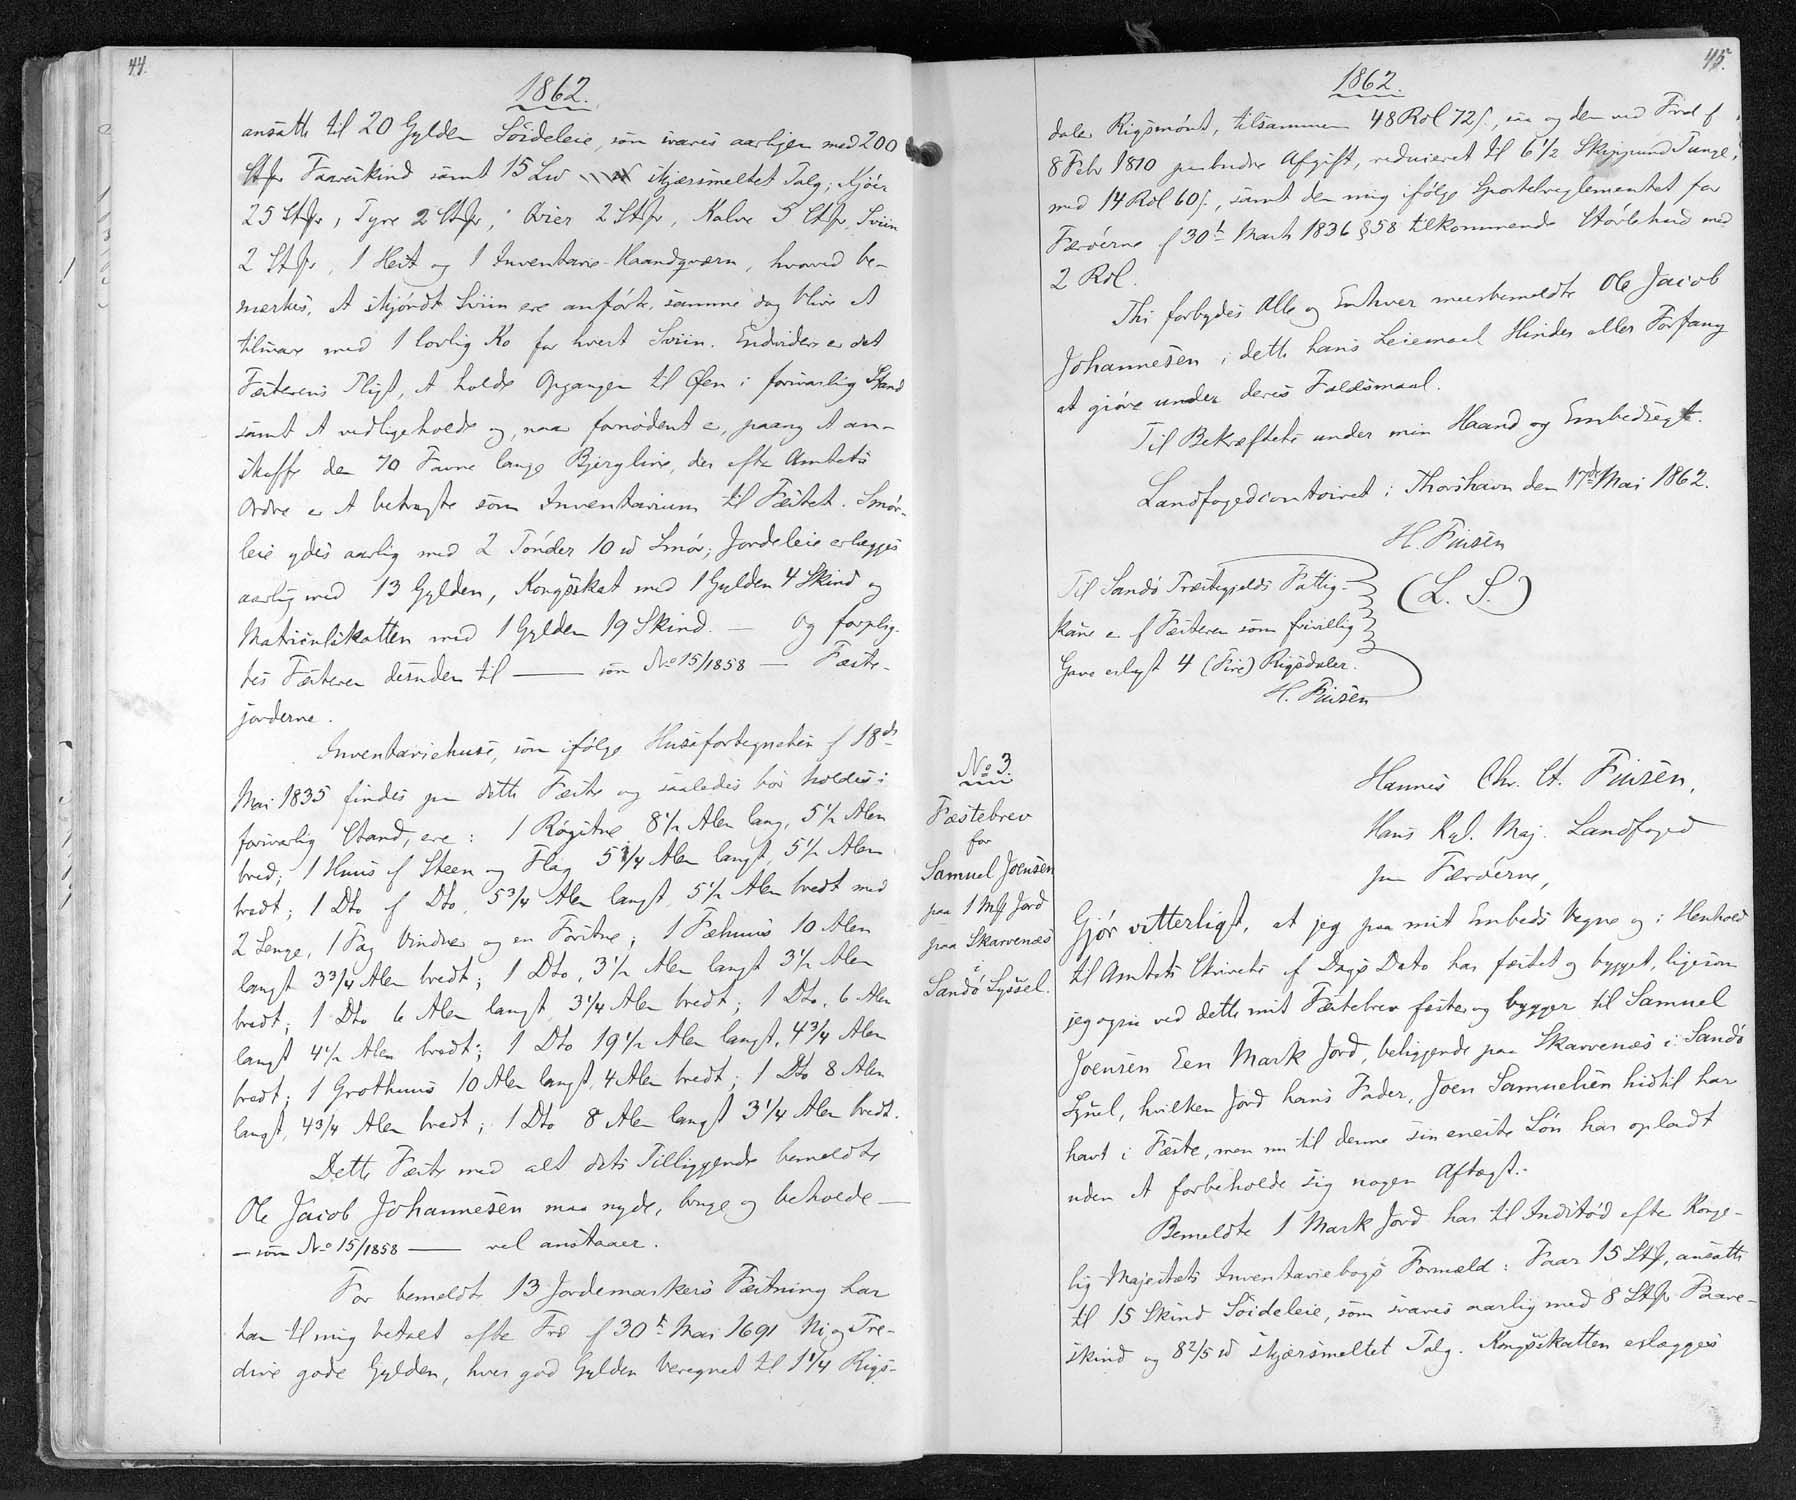 44.
1862.
ansatte til 20 Gylden Söideleie, som svares aarligen med 200
Stkr Faareskind samt 15 Lod skjærsmeltet Talg; Kjöer
25 Stkr, Tyre 2 Stkr, Qvier 2 Stkr, Kalve 5 Stkr, Sviin
2 Stkr, 1 Hest og 1 Inventarie-Haandqværn, hvorved be-
mærkes, at skjöndt Sviin ere anförte, samme dog blive at
tilsvare med 1 lovlig Ko for hvert Sviin. Endvidere er det
Fæsterens Pligt, at holde Opgangen til Öen i forsvarlig Stand
samt at vedligeholde og, naar fornödent er, paany at an-
skaffe den 70 Favne lange Bjergline, der efter Amtets
Ordre er at betragte som Inventarium til Fæstet. Smör-
leie ydes aarlig med 2 Tönder 10 lb Smör; Jordeleie erlægges
aarlig med 13 Gylden, Kongsskat med 1 Gylden 4 Skind og
Matriculskatten med 1 Gylden 19 Skind. — Og forplig-
tes Fæsteren desuden til —— som No 15/1858 — Fæste-
jorderne.
Inventariehuse, som ifölge Huusefortegnelsen af 18de
Mai 1835 findes paa dette Fæste og saaledes bör holdes i
forsvarlig Stand, ere: 1 Rögstue 8½ Alen lang, 5½ Alen
bred; 1 Huus af Steen og Flag 5¼ Alen langt, 5½ Alen
bredt; 1 Dto af Dto, 5¾ Alen langt, 5½ Alen bredt med
2 Senge, 1 Fag Vinduer og en Forstue; 1 Fæhuus 10 Alen
langt 3¾ Alen bredt; 1 Dto, 3½ Alen langt 3½ Alen
bredt; 1 Dto 6 Alen langt 3¼ Alen bredt; 1 Dto, 6 Alen
langt 4½ Alen bredt; 1 Dto 19½ Alen langt, 4¾ Alen
bredt; 1 Grothuus 10 Alen langt, 4 Alen bredt; 1 Dto 8 Alen
langt, 4¾ Alen bredt; 1 Dto 8 Alen langt 3¼ Alen bredt.
Dette Fæste med alt dets Tilliggende bemeldte
Ole Jacob Johannesen maa nyde, bruge og beholde —
— som No 15/1858 — vel anstaaer.
For bemeldte 13 Jordemarkers Fæstning har
han til mig betalt efter Frd af 30te Mai 1691 Ni og Tre-
dive gode Gylden, hver god Gylden beregnet til 1¼ Rigs-
45.
1862.
daler Rigsmönt, tilsammen 48 Rdl 72 s., saa og den ved Frd af
8 Febr 1810 paabudne Afgift, reduceret til 6½ Skippund Tunge,
med 14 Rdl 60 s., samt den mig ifölge Sportelreglementet for
Færöerne af 30te Marts 1836 § 58 tilkommende Störlehud med
2 Rdl.
Thi forbydes Alle og Enhver meerbemeldte Ole Jacob
Johannesen i dette hans Leiemaal Hinder eller Forfang
at gjöre under deres Faldsmaal.
Til Bekræftelse under min Haand og Embedssegl.
Landfogedcontoiret i Thorshavn den 17de Mai 1862.
H. Finsen
(L. S.)
Til Sandö Præstegjelds Fattig-
kasse er af Fæsteren som frivillig
Gave erlagt 4 (Fire) Rigsdaler.
H. Finsen
No 3.
Fæstebrev
for
Samuel Joensen
paa 1 Mk Jord
paa Skarvenæs
i
Sandö Syssel.
Hannes Chr. St. Finsen,
Hans Kgl. Maj. Landfoged
paa Færöerne,
Gjör vitterligt, at jeg paa mit Embeds Vegne og i Henhold
til Amtets Skrivelse af Dags Dato har fæstet og bygget, ligesom
jeg ogsaa ved dette mit Fæstebrev fæster og bygger til Samuel
Joensen Een Mark Jord, beliggende paa Skarvenæs i Sandö
Syssel, hvilken Jord hans Fader, Joen Samuelsen hidtil har
havt i Fæste, men nu til denne sin eneste Sön har opladt
uden at forbeholde sig nogen Aftægt.
Bemeldte 1 Mark Jord har til Indstöd efter Konge-
lig Majestæts Inventariebogs Formeld: Faar 15 Stkr, ansatte
til 15 Skind Söideleie, som svares aarlig med 8 Stkr Faare-
skind og 8⅖ lb skjærsmeltet Talg. Kongsskatten erlægges